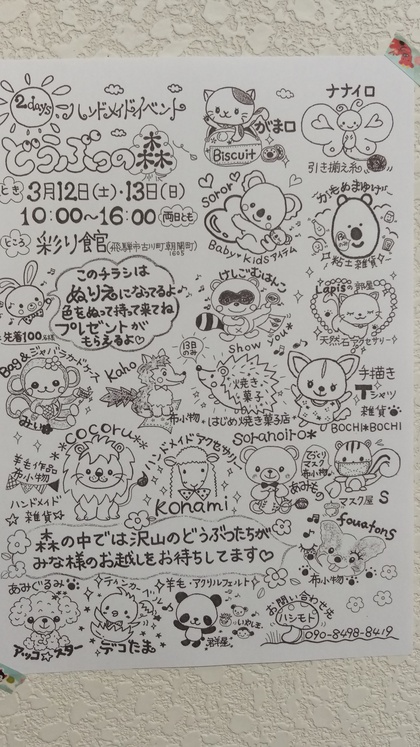 2days ハンドメイドイベント
どうぶつの森
とき 3月12日(土)・13日(日)
10:00〜16:00 両日とも
ところ 彩り館(飛騨市古川町朝開町)
このチラシは
ぬりえになってるよ♪
色をぬって持って来てね
プレゼントが
もらえるよ♡
先着100名様
がま口
Biscuit
ナナイロ
引き揃え糸
soror
Baby・Kidsアイテム
かもめまゆげ
粘土雑貨
けしごむはんこ
Show you*
Lapisの部屋
天然石アクセサリー
Bag&ジャパラケケア
みい
Kaho
布小物
13日のみ
焼き菓子
はじめ焼き菓子店
手描き
Tシャツ
雑貨
BOCHI*BOCHI
cocoru
羊毛作品
布小物
ハンドメイド
雑貨
ハンドメイドアクセサリー
Konami
soranoiro*
あみもの
マスク
布小物
マスク屋 S
森の中では沢山のどうぶつたちが
みな様のお越しをお待ちしてます♡
fouatons
布小物
あみぐるみ
アッコ☆スター
デコたま。
羊毛・アクリルフェルト
お問い合わせも
ハシモト
090-8498-8419